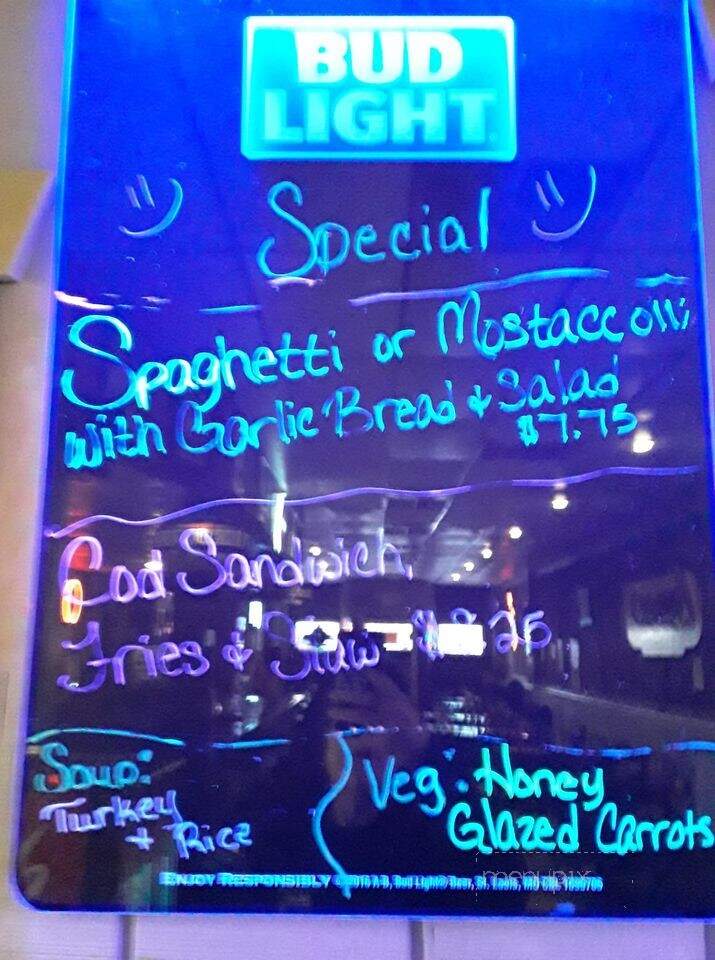 BUD
LIGHT
Special
Spaghetti or Mostaccolli
with Garlic Bread & Salad
$7.75
Cod Sandwich,
Fries & Slaw 25
Soup:
Turkey
+ Rice
Veg: Honey
Glazed Carrots
ENJOY RESPONSIBLY ©2016 A-B, Bud Light® Beer, St. Louis, MO
menupix